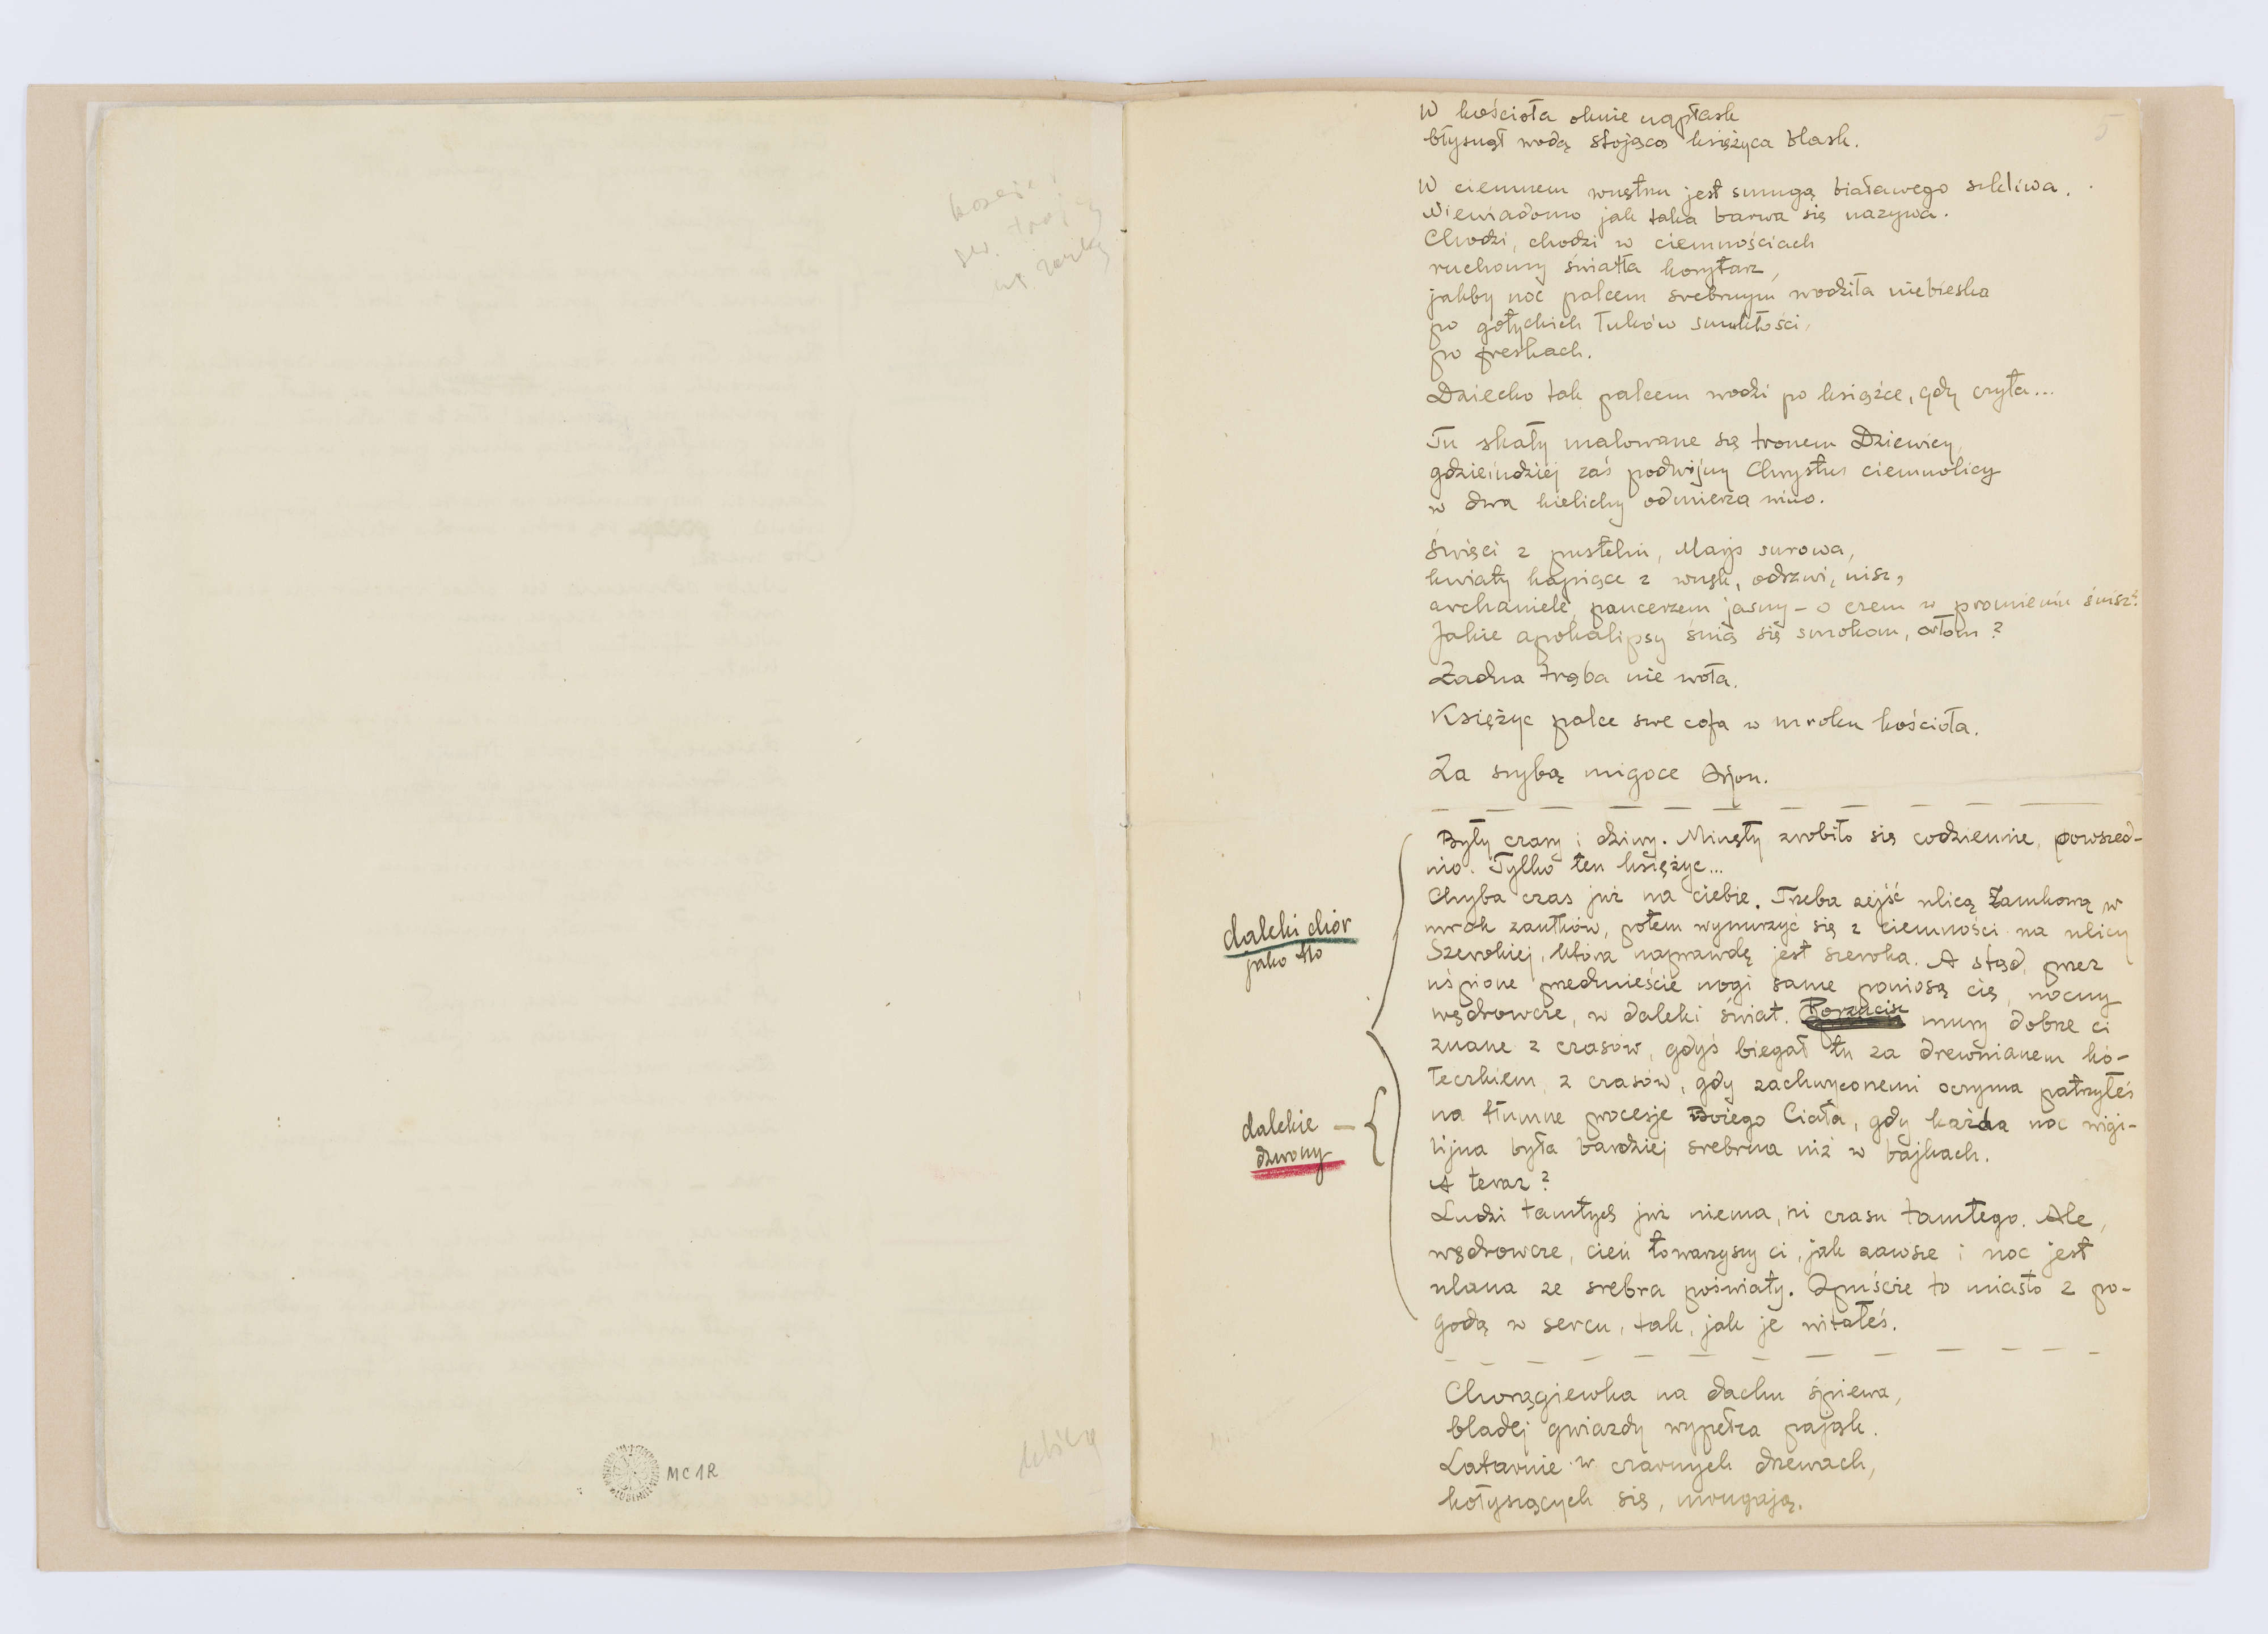 W kościoła oknie napłask
błysnął wodą stojącą księżyca blask.
W ciemnem wnętrzu jest smugą białawego szkliwa.
Niewiadomo jak taka barwa się nazywa.
Chodzi, chodzi w ciemnościach
ruchomy światła korytarz,
jakby noc palcem srebrnym wodziła niebieska
po gotyckich łuków smukłości,
po freskach.
Dziecko tak palcem wodzi po książce, gdy czyta...
Tu skały malowane są tronem Dziewicy,
gdzieindziej zaś podwójny Chrystus ciemnolicy
w dwa kielichy odmierza wino.
Święci z pustelni, Marjo surowa,
kwiaty kapiące z wnęk, odrzwi, nisz,
archaniele, pancerzem jasny – o czem w promieniu śnisz?
Jakie apokalipsy śnią się smokom, orłom?
Żadna trąba nie woła.
Księżyc palce swe cofa w mroku kościoła.
Za szybą migoce Orjon.
Były czary i dziwy. Minęły zrobiło się codziennie, powszed-
nio. Tylko ten księżyc...
Chyba czas już na ciebie. Trzeba zejść ulicą Zamkową w
mrok zaułków, potem wynurzyć się z ciemności na ulicy
Szerokiej, która naprawdę jest szeroka. A stąd, przez
uśpione przedmieście nogi same poniosą cię, nocny
wędrowcze, w daleki świat. Porzucisz mury dobrze ci
znane z czasów, gdyś biegał tu za drewnianem kó-
łeczkiem, z czasów, gdy zachwyconemi oczyma patrzyłeś
na tłumne procesje Bożego Ciała, gdy każda noc wigi-
lijna była bardziej srebrna niż w bajkach.
A teraz?
Ludzi tamtych już niema, ni czasu tamtego. Ale,
wędrowcze, cień towarzyszy ci, jak zawsze i noc jest
ulana ze srebra poświaty. Opuście to miasto z po-
godą w sercu, tak, jak je witałeś.
Chorągiewka na dachu śpiewa,
bladej gwiazdy wypełza pająk.
Latarnie w czarnych drzewach,
kołyszących się, mrugają.
daleki chór
jako tło
dalekie –
dzwony
5
MC1R